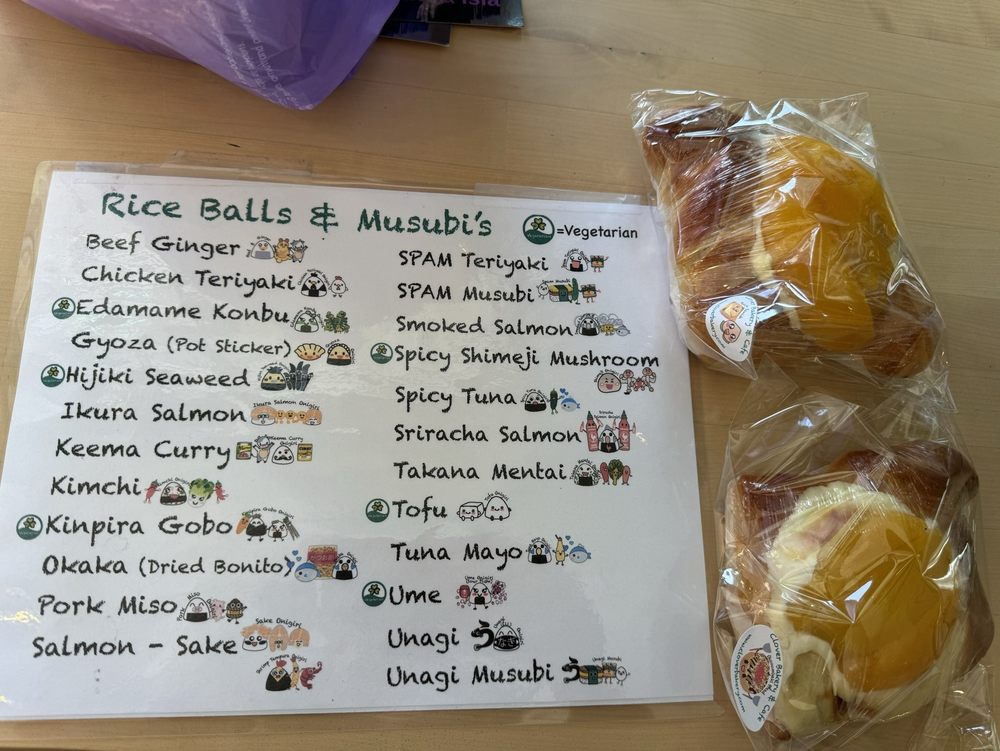 Rice Balls & Musubi's
=Vegetarian
Beef Ginger
Chicken Teriyaki
Edamame Konbu
Gyoza (Pot Sticker)
Hijiki Seaweed
Ikura Salmon
Keema Curry
Kimchi
Kinpira Gobo
Okaka (Dried Bonito)
Pork Miso
Salmon - Sake
SPAM Teriyaki
SPAM Musubi
Smoked Salmon
Spicy Shimeji Mushroom
Spicy Tuna
Sriracha Salmon
Takana Mentai
Tofu
Tuna Mayo
Ume
Unagi う
Unagi Musubi う
Clover Bakery & Cafe